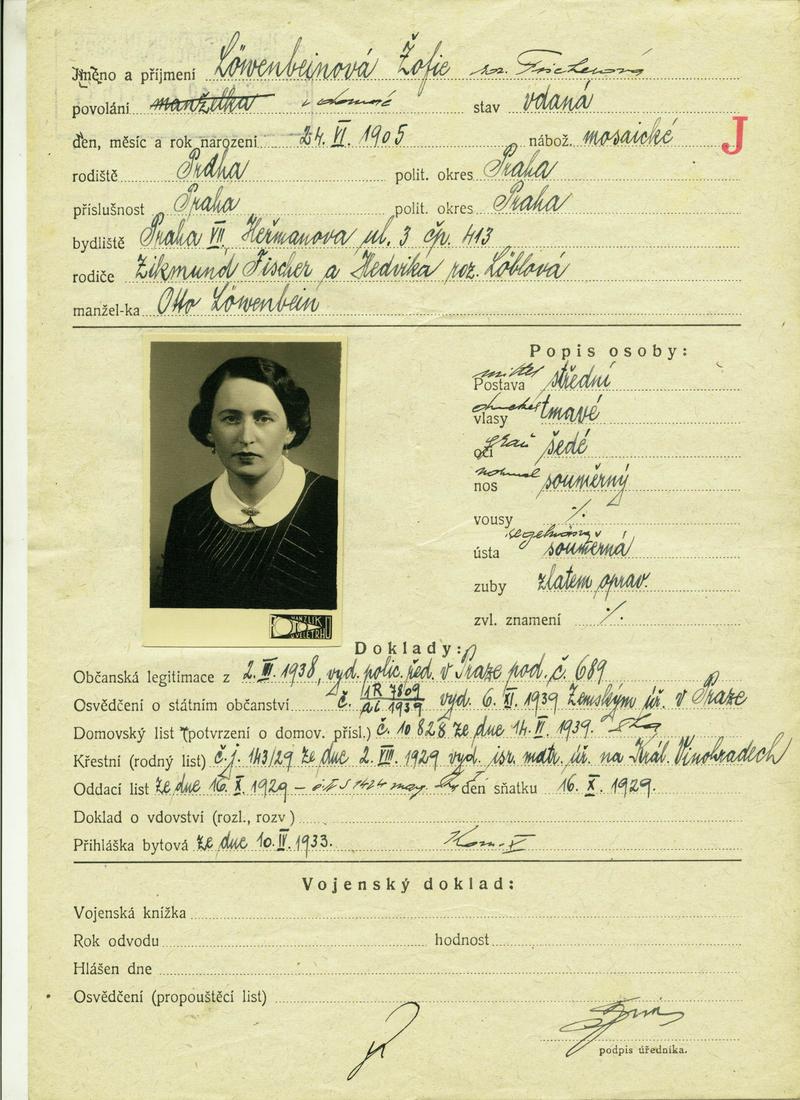 Jméno a příjmení Löwenbeinová Žofie roz. Fischerová
povolání manželka v domác stav vdaná
den, měsíc a rok narození 24. VI. 1905 nábož. mosaické J
rodiště Praha polit. okres Praha
příslušnost Praha polit. okres Praha
bydliště Praha VII, Heřmanova ul. 3 čp. 413
rodiče Zikmund Fischer a Hedvika roz. Löblová
manžel-ka Otto Löwenbein
Popis osoby:
mittel
Postava střední
dunkel
vlasy tmavé
grau
oči šedé
normal
nos souměrný
vousy ·/·
ústa souměrná
zuby zlatem oprav.
zvl. znamení ·/·
Doklady:
Občanská legitimace z 2. III. 1938, vyd. polic. řed. v Praze pod. č. 689
Osvědčení o státním občanství č. 1R 7809 ai 1939 vyd. 6. XI. 1939 Zemským úř. v Praze
Domovský list (potvrzení o domov. přísl.) č. 10828 ze dne 14. II. 1939.
Křestní (rodný list) č.j. 143/29 ze dne 2. VIII. 1929 vyd. isr. matr. úř. na Král. Vinohradech
Oddací list ze dne 16. X. 1929 – den sňatku 16. X. 1929.
Doklad o vdovství (rozl., rozv)
Přihláška bytová ze dne 10. IV. 1933. Kom. V
Vojenský doklad:
Vojenská knížka
Rok odvodu hodnost
Hlášen dne
Osvědčení (propouštěcí list)
podpis úředníka.